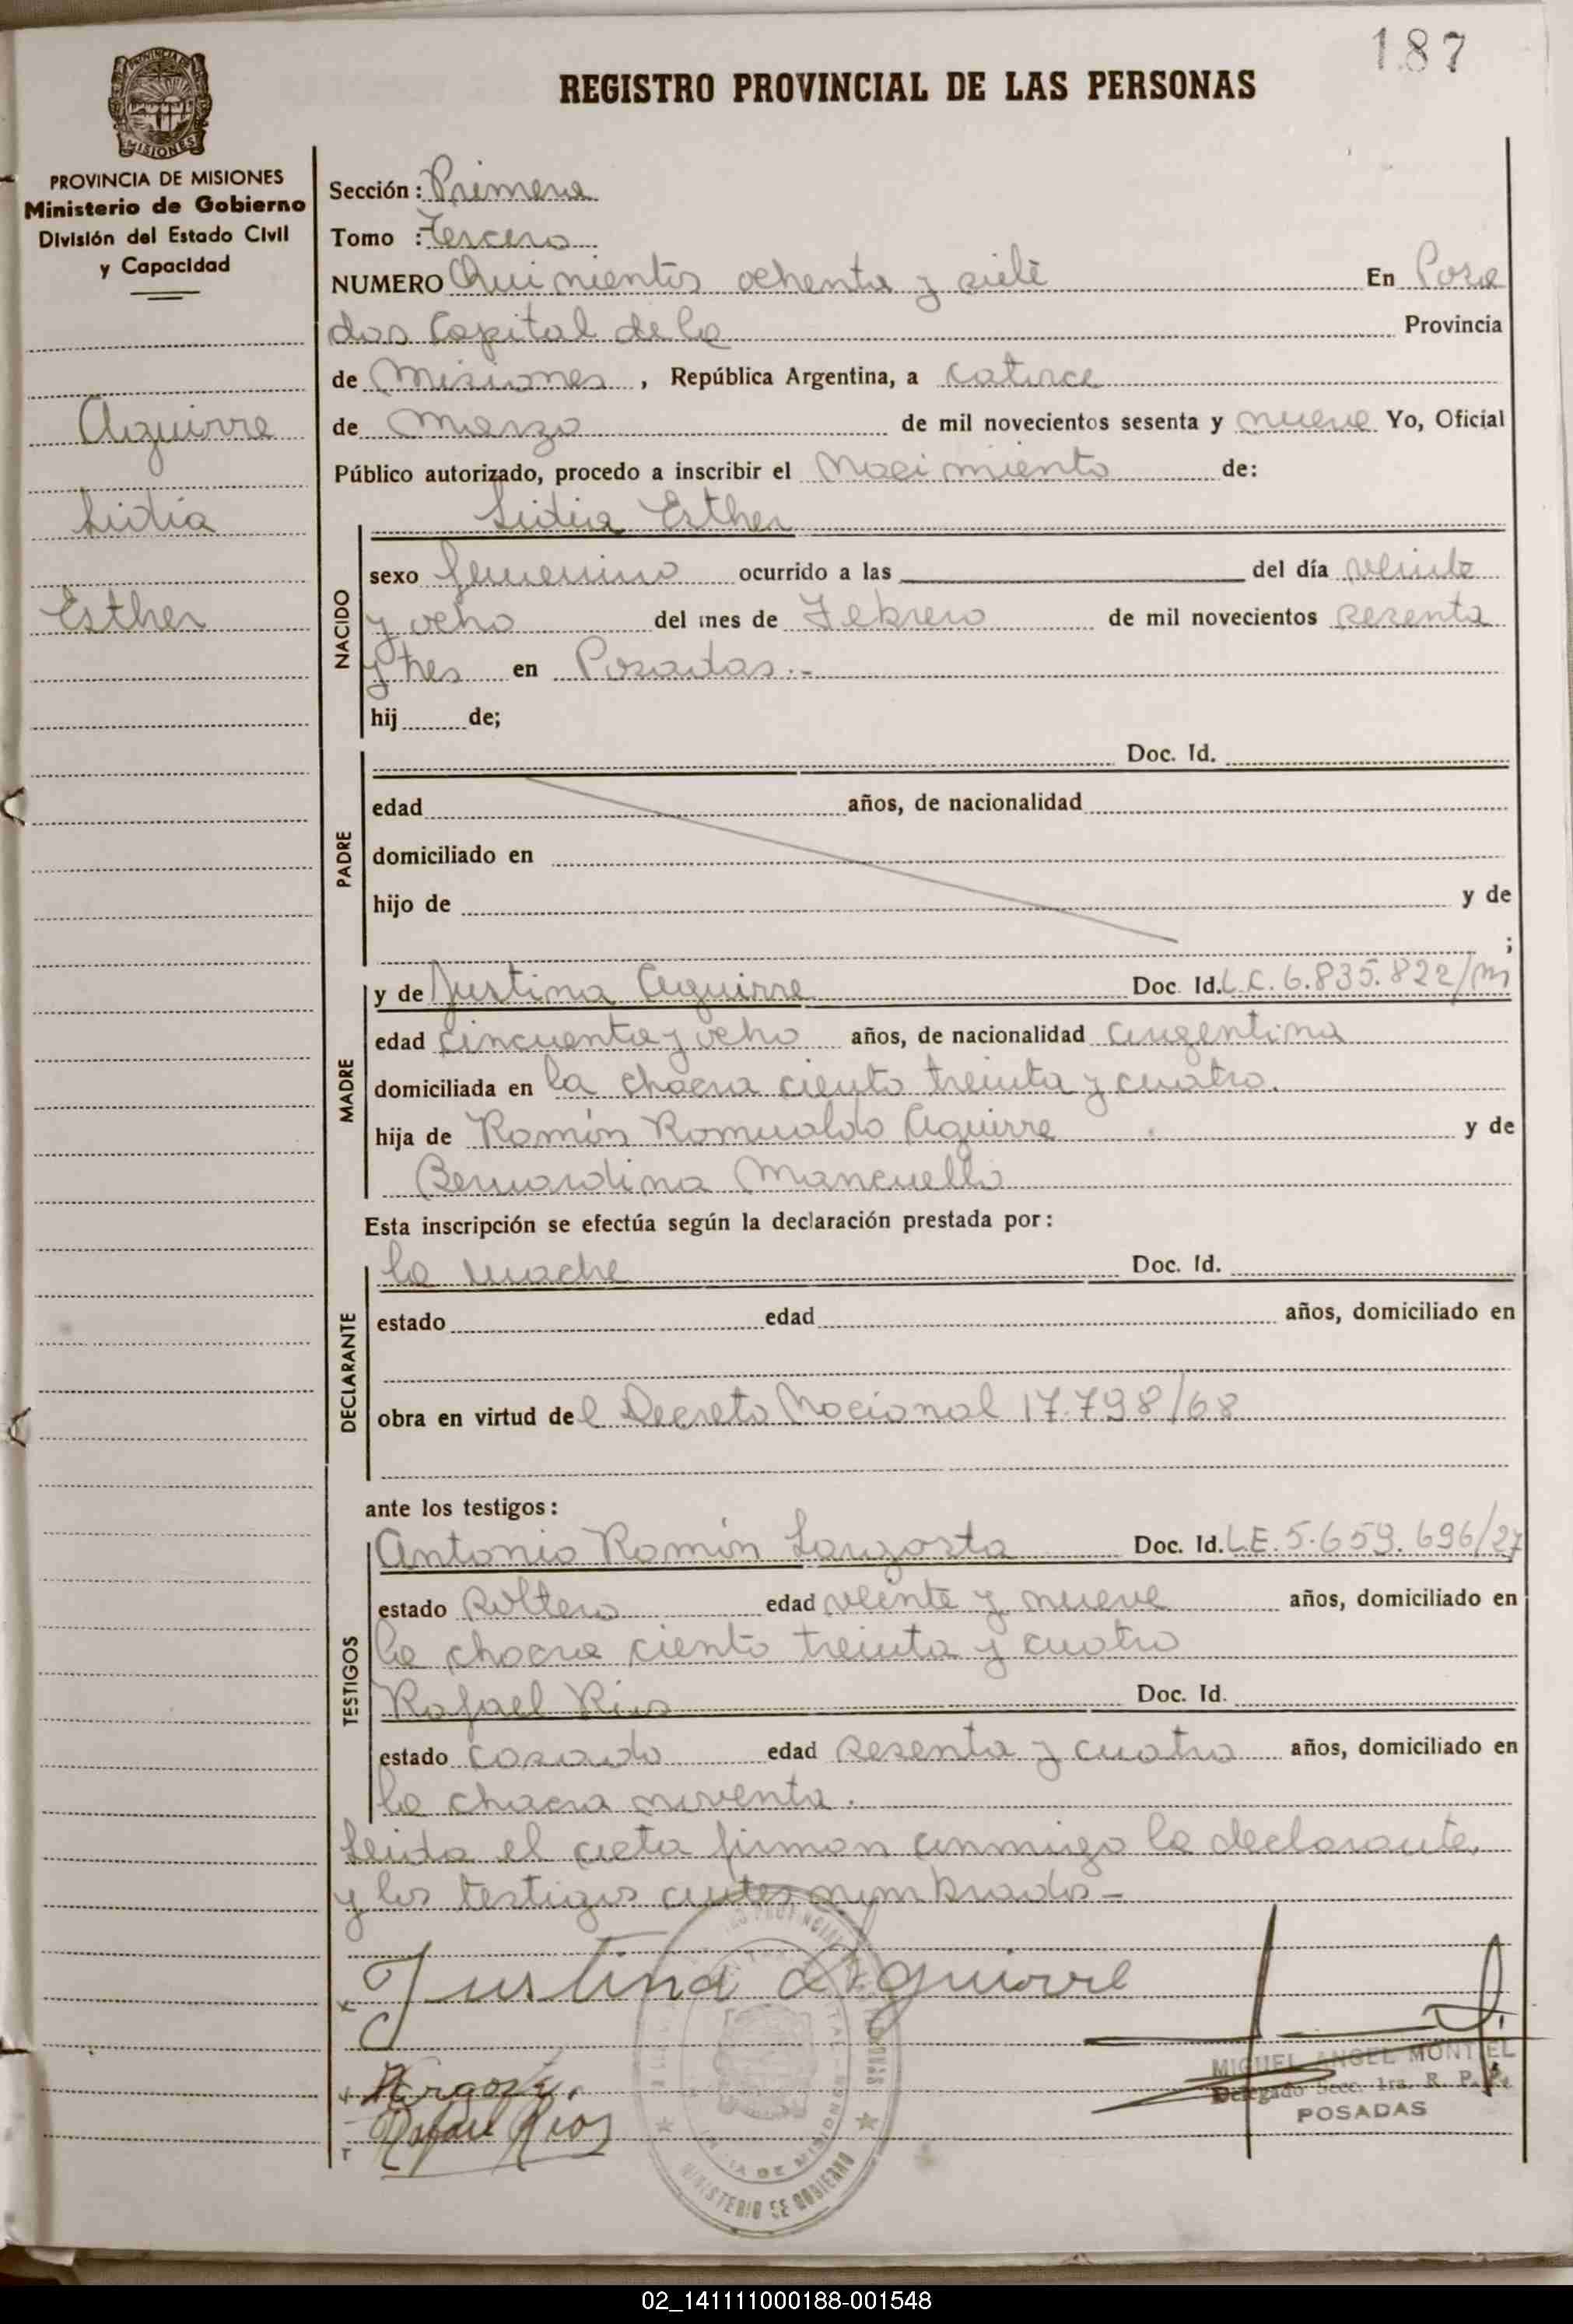 187
REGISTRO PROVINCIAL DE LAS PERSONAS
PROVINCIA DE MISIONES
Ministerio de Gobierno
División del Estado Civil
y Capacidad
Aguirre
Lidia
Esther
Sección: Primera
Tomo : Tercero
NUMERO Quinientos ochenta y siete En Posa
das Capital de la Provincia
de Misiones, República Argentina, a catorce
de Marzo de mil novecientos sesenta y nueve Yo, Oficial
Público autorizado, procedo a inscribir el Nacimiento de:
Lidia Esther
NACIDO
sexo femenino ocurrido a las del día veinte
y ocho del mes de Febrero de mil novecientos sesenta
y tres en Posadas.-
hij de;
PADRE
Doc. Id.
edad años, de nacionalidad
domiciliado en
hijo de y de
;
MADRE
y de Justina Aguirre Doc. Id. L.C. 6.835.822/m
edad cincuenta y ocho años, de nacionalidad argentina
domiciliada en la chacra ciento treinta y cuatro.
hija de Román Romualdo Aguirre y de
Bernardina Mancuello
Esta inscripción se efectúa según la declaración prestada por:
DECLARANTE
la madre Doc. Id.
estado edad años, domiciliado en
obra en virtud del Decreto Nacional 17.798/68
ante los testigos:
TESTIGOS
Antonio Román Doc. Id. L.E. 5.659.696/27
estado soltero edad veinte y nueve años, domiciliado en
la chacra ciento treinta y cuatro
Rafael Rios Doc. Id.
estado casado edad sesenta y cuatro años, domiciliado en
la chacra noventa.
Leida el acta firman conmigo la declarante,
y los testigos antes nombrados-
Justina Aguirre
Rafael Rios
MIGUEL ANGEL MONTIEL
Delegado Secc. 1ra. R. P. P.
POSADAS
MINISTERIO DE GOBIERNO
02_141111000188-001548